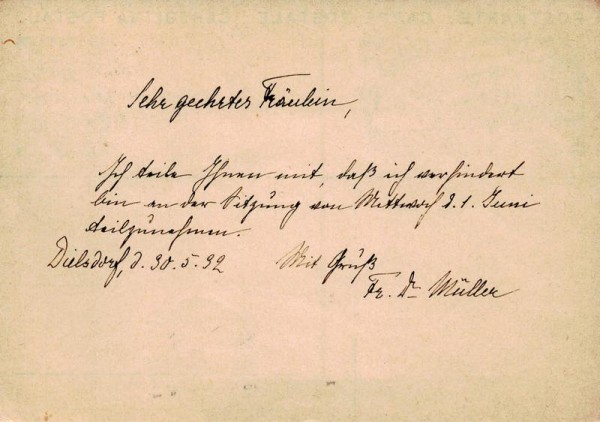 Sehr geehrtes Fräulein,
Ich teile Ihnen mit, daß ich verhindert
bin an der Sitzung von Mittwoch d. 1. Juni
teilzunehmen.
Dielsdorf, d. 30.5.32 Mit Gruß
Fr. Dr Müller